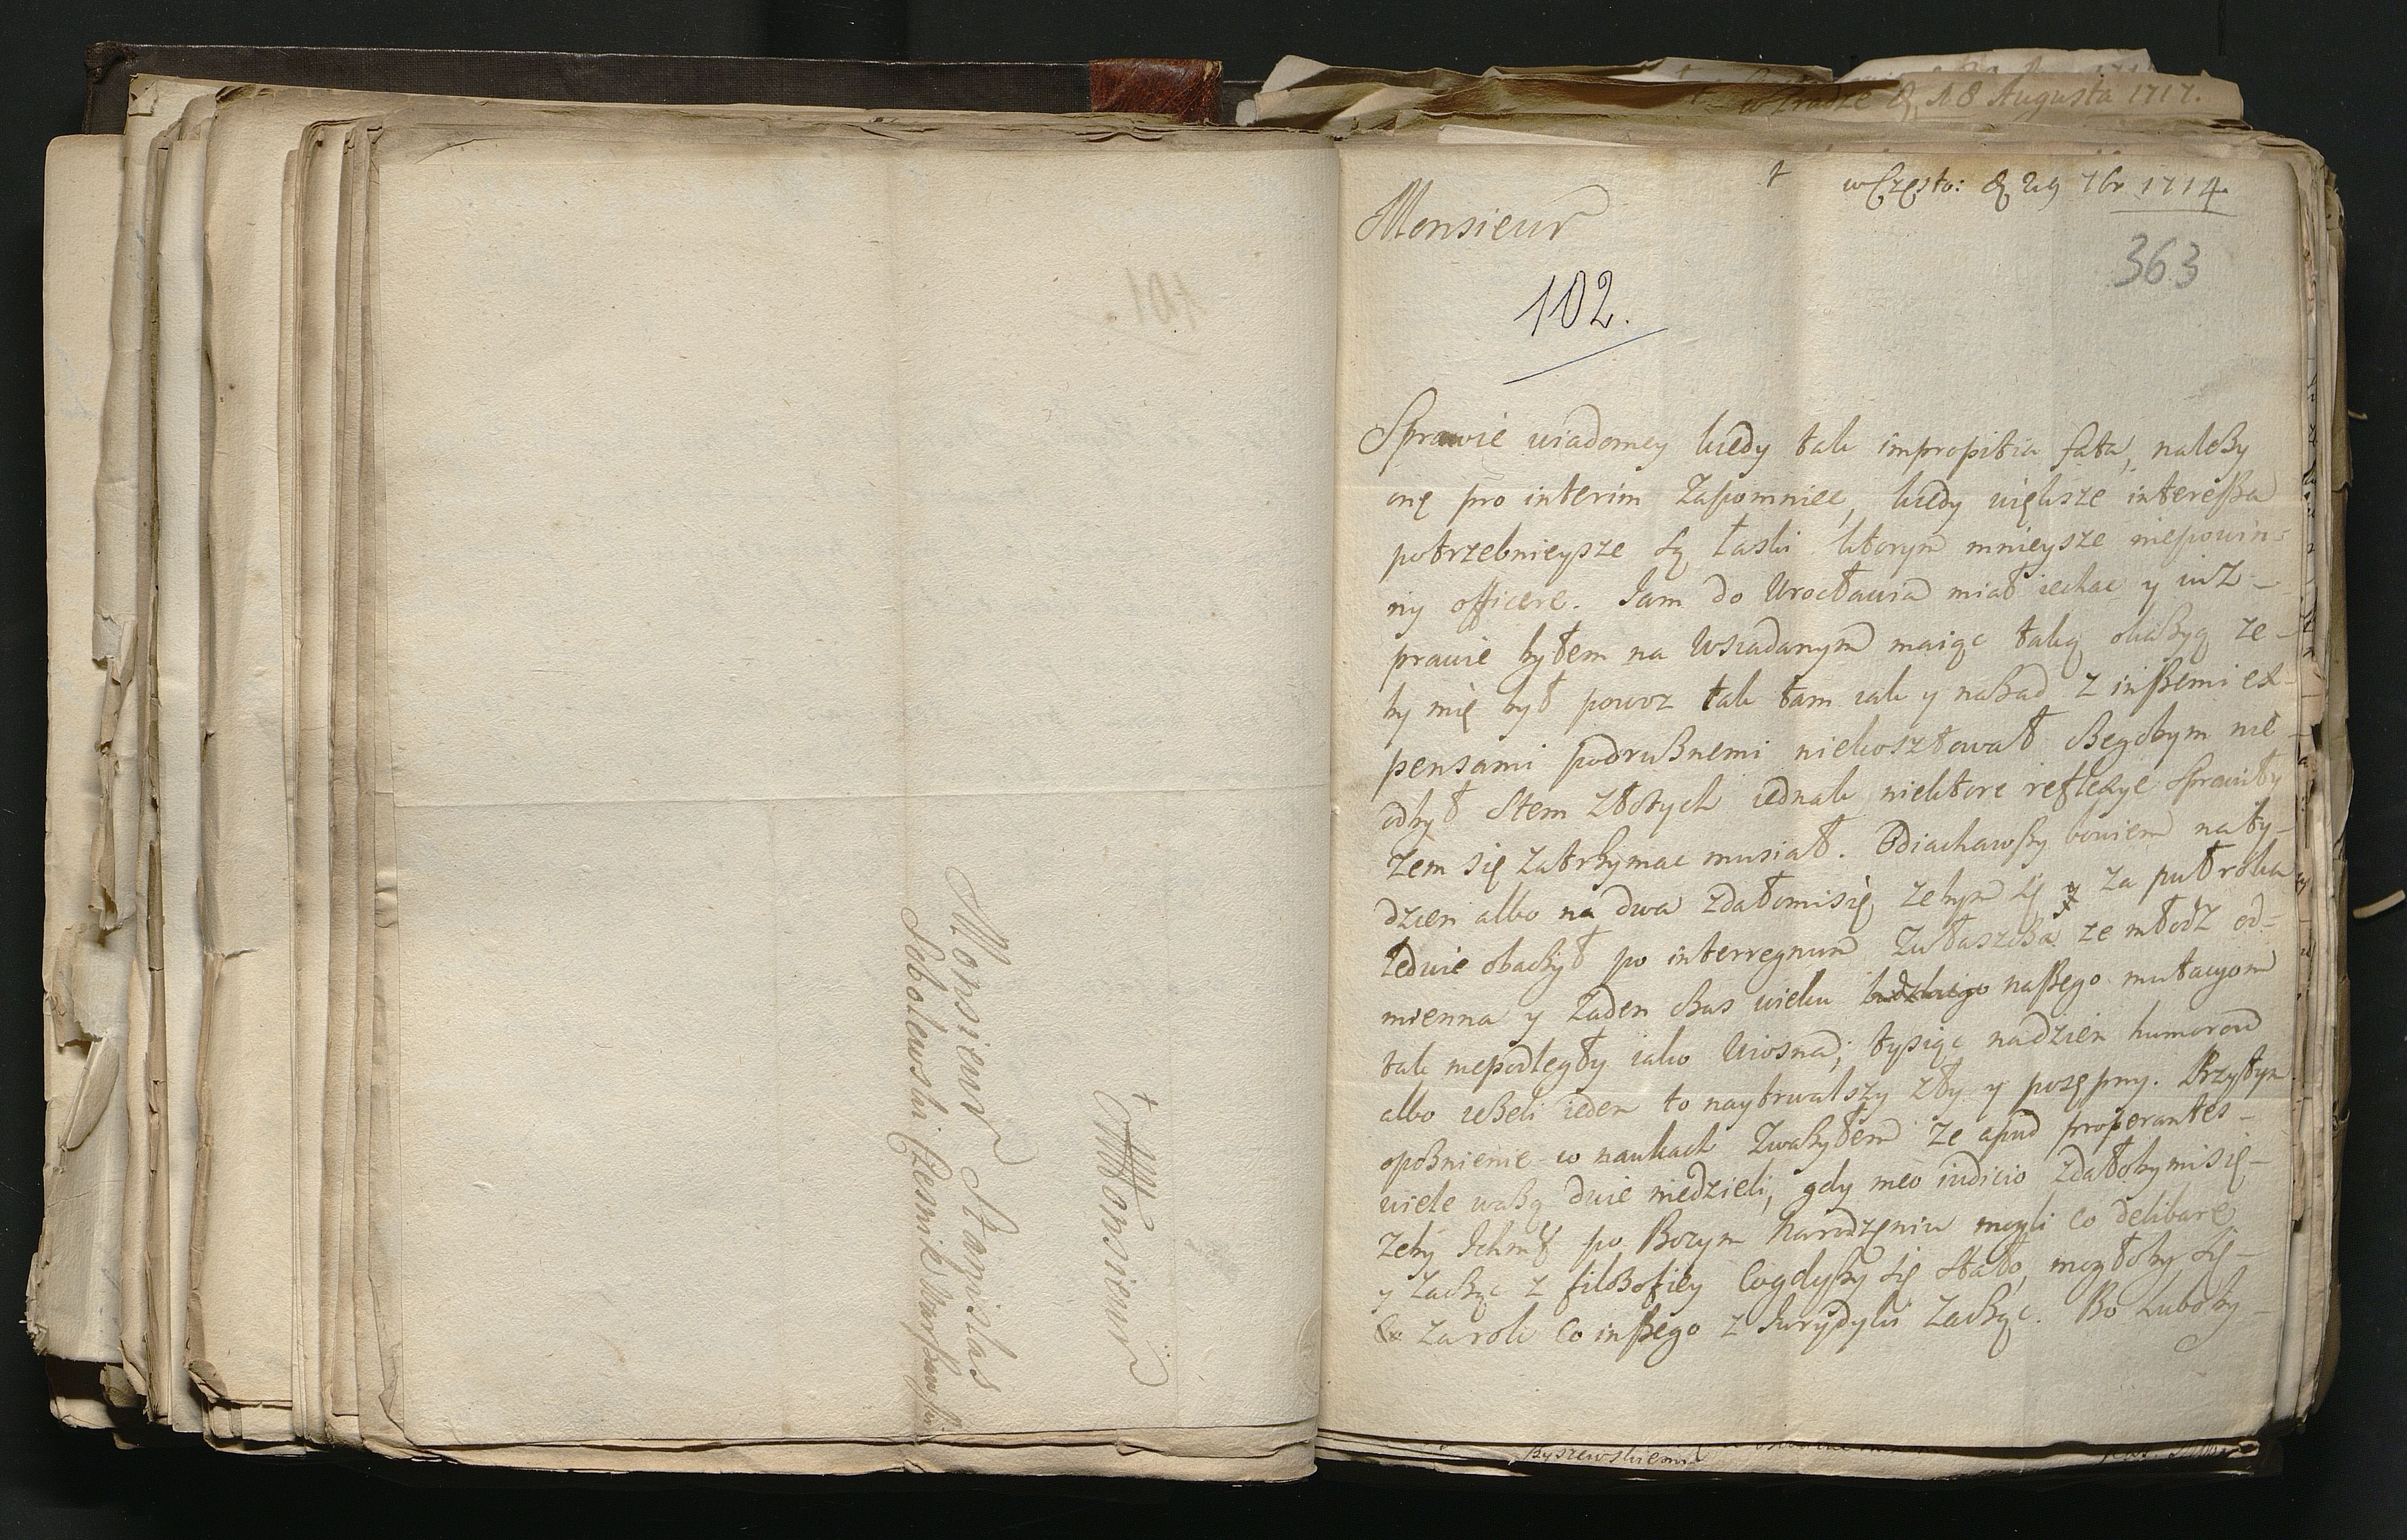 Monsieur
Monsieur Stagislas
Sobolewski Czesnik Warszawski
w Często: d 29 7br 1714
363
Monsieur
102.
Sprawie wiadomey kiedy tak impropitia fata, należy
onę pro interim zapomniec, kiedy większe interessa
potrzebnieysze są łaski ktorym mnieysze niepowin-
ny officere. Jam do Wrocławia miał iechac y iuz-
prawie byłem na wsiadanym maiąc taką okazyą ze-
by mię był powoz tak tam iak y nazad z inszemi ex-
pensami podrużnemi niekosztował czegobym nie-
odbył stem złotych iednak niektore reflexye sprawiły
zem się zatrzymac musiał. Odiachawszy bowiem na ty-
dzien albo na dwa zdałomisię zebym się za puł roka
ledwie obaczył po interregnum zwłaszcza ze młodz od-
mienna y zaden czas wieku ludzkiego naszego mutacyom
tak niepodległy iako wiosna; tysiąc nadzien humorow
albo iezeli ieden to naytrwalszy zły y posępny. Przytym
opoznienie w naukach zwazyłem ze apud properantes-
wiele wazą dwie niedzieli, gdy meo iudicio zdałobymisię-
zeby Ichmć po Bozym Narodzęniu mogli co delibare
y zacząc z filozofiey cogdyby się stało, mogłoby się-
za rok co inszego z Jurydyki zacząc. Bo luboby-
w Pradze d 18 Augusta 1717.
Byszewskiemu